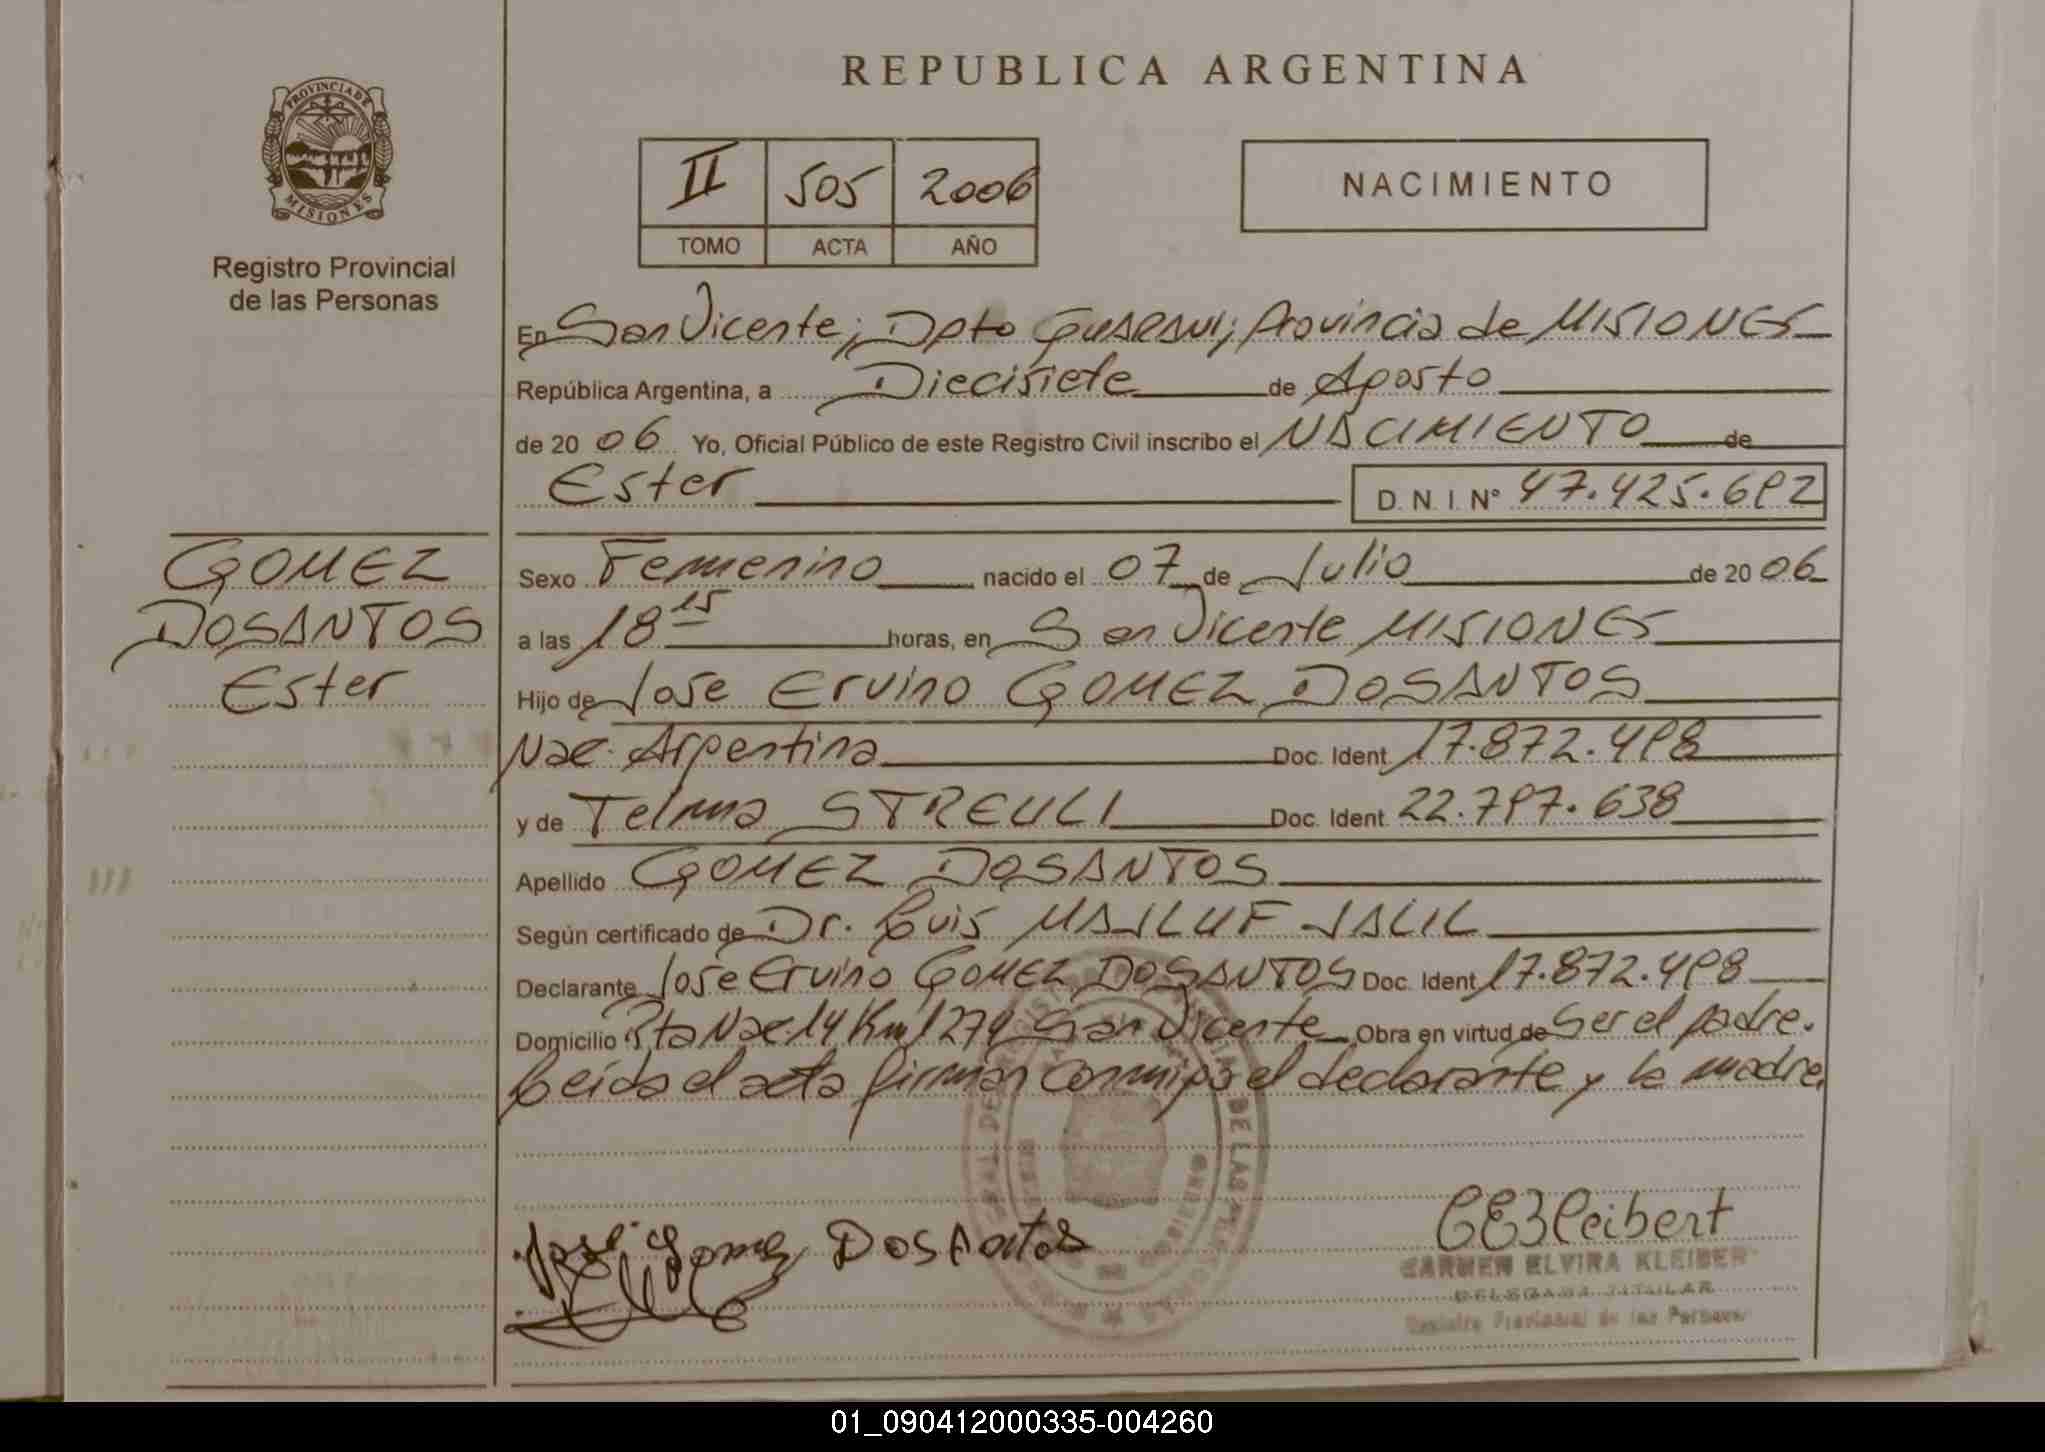 PROVINCIA DE
MISIONES
Registro Provincial
de las Personas
REPUBLICA ARGENTINA
II 505 2006
TOMO ACTA AÑO
NACIMIENTO
En San Vicente; Dpto GUARANI; Provincia de MISIONES
República Argentina, a Diecisiete de Agosto
de 2006 Yo, Oficial Público de este Registro Civil inscribo el NACIMIENTO de
Ester D. N. I. N° 47.425.692
GOMEZ
DOSANTOS
Ester
Sexo Femenino nacido el 07 de Julio de 2006
a las 18 15 horas, en San Vicente MISIONES
Hijo de Jose Ervino GOMEZ DOSANTOS
Nac. Argentina Doc. Ident. 17.872.498
y de Telma STREULI Doc. Ident. 22.797.638
Apellido GOMEZ DOSANTOS
Según certificado de Dr. Luis MAJLUF JALIL
Declarante Jose Ervino GOMEZ DOSANTOS Doc. Ident. 17.872.498
Domicilio Rta Nac. 14 Km 1279 San Vicente Obra en virtud de Ser el padre.
Leida el acta firman conmigo el declarante y la madre.
José Gomez DosAntos
CARMEN ELVIRA KLEIBER
DELEGADA TITULAR
Registro Provincial de las Personas
01_090412000335-004260